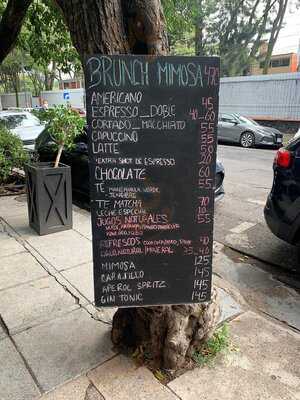 BRUNCH MIMOSA 470
AMERICANO 45
ESPRESSO_DOBLE 40_60
CORTADO_MACCHIATO 55
CAPUCCINO 55
LATTE 58
*EXTRA SHOT DE ESPRESSO 20
CHOCOLATE 60
TE MANZANILLA VERDE JENGIBRE 55
TE MATCHA 70
LECHE ESPECIAL 10
JUGOS NATURALES 55
REFRESCOS 40
AGUA NATURAL/MINERAL 35_40
MIMOSA 125
CARAJILLO 145
APEROL SPRITZ 145
GIN TONIC 145